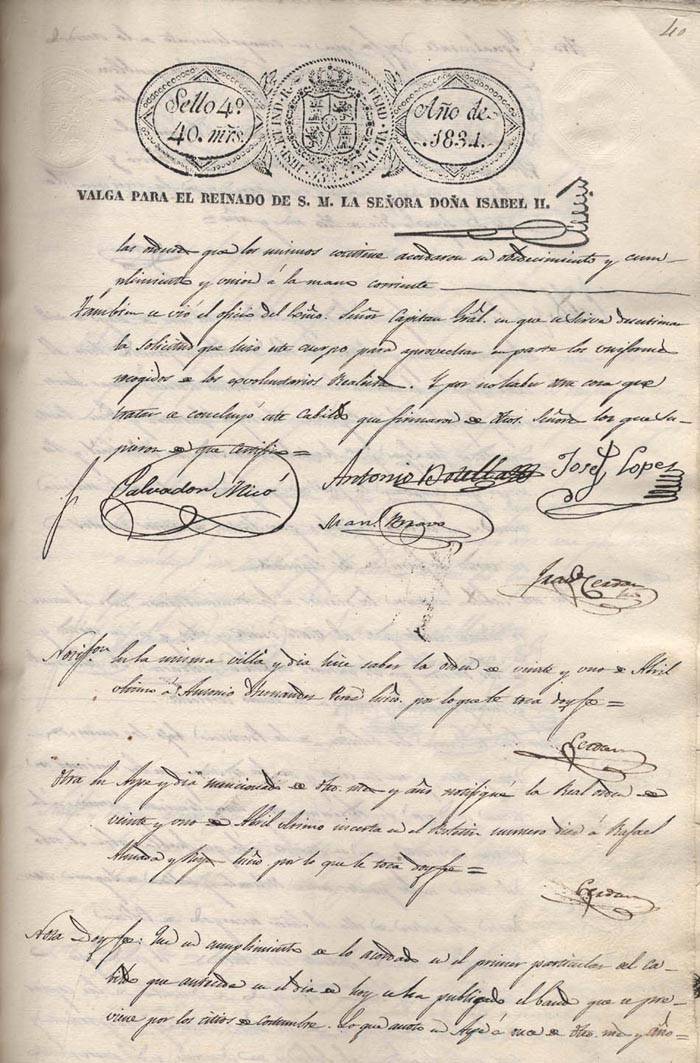 40
Sello 4º
40. mrs.
HISP. ET IND. R. FERD. VII. D. G.
Año de
1834.
VALGA PARA EL REINADO DE S. M. LA SEÑORA DOÑA ISABEL II.
las ordenes que los mismos contiene acordaron su obedecimiento y cum-
plimiento y unión á la mano corriente
Tambien se vió el oficio del Señor Capitan Gral. en que se sirve
la solicitud que hizo este cuerpo para aprovechar en parte los uniformes
recogidos de los exvoluntarios Realistas. Y por no haber otra cosa que
tratar se concluyó este Cabildo que firmaron de dhos. Señores los que su-
pieron de que certifico =
Salvador Micó
Antonio Botella
José Lopez
Man. Bravo
Cerdan
Notifon. En la misma villa y dia hice saber la orden de veinte y uno de Abril
ultimo á Antonio Hernandez Perez por lo que le toca doy fe =
Cerdan
Otra En Aspe y dia mencionado de dho. mes y año notifiqué la Real orden de
veinte y uno de Abril ultimo inserta en el Boletin numero diez á Rafael
Almada y por lo que le toca doy fe =
Cerdan
Nota Doy fe: Que en cumplimiento de lo acordado en el primer particular del Ca-
bildo que antecede en el dia de hoy se ha publicado el bando que se pre-
viene por los sitios de costumbre. Lo que anoto en Aspe á once de dho. mes y año=